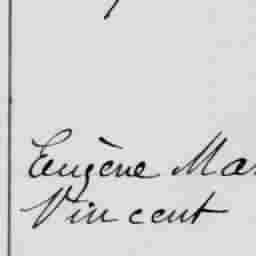 Eugène Ma
Vincent